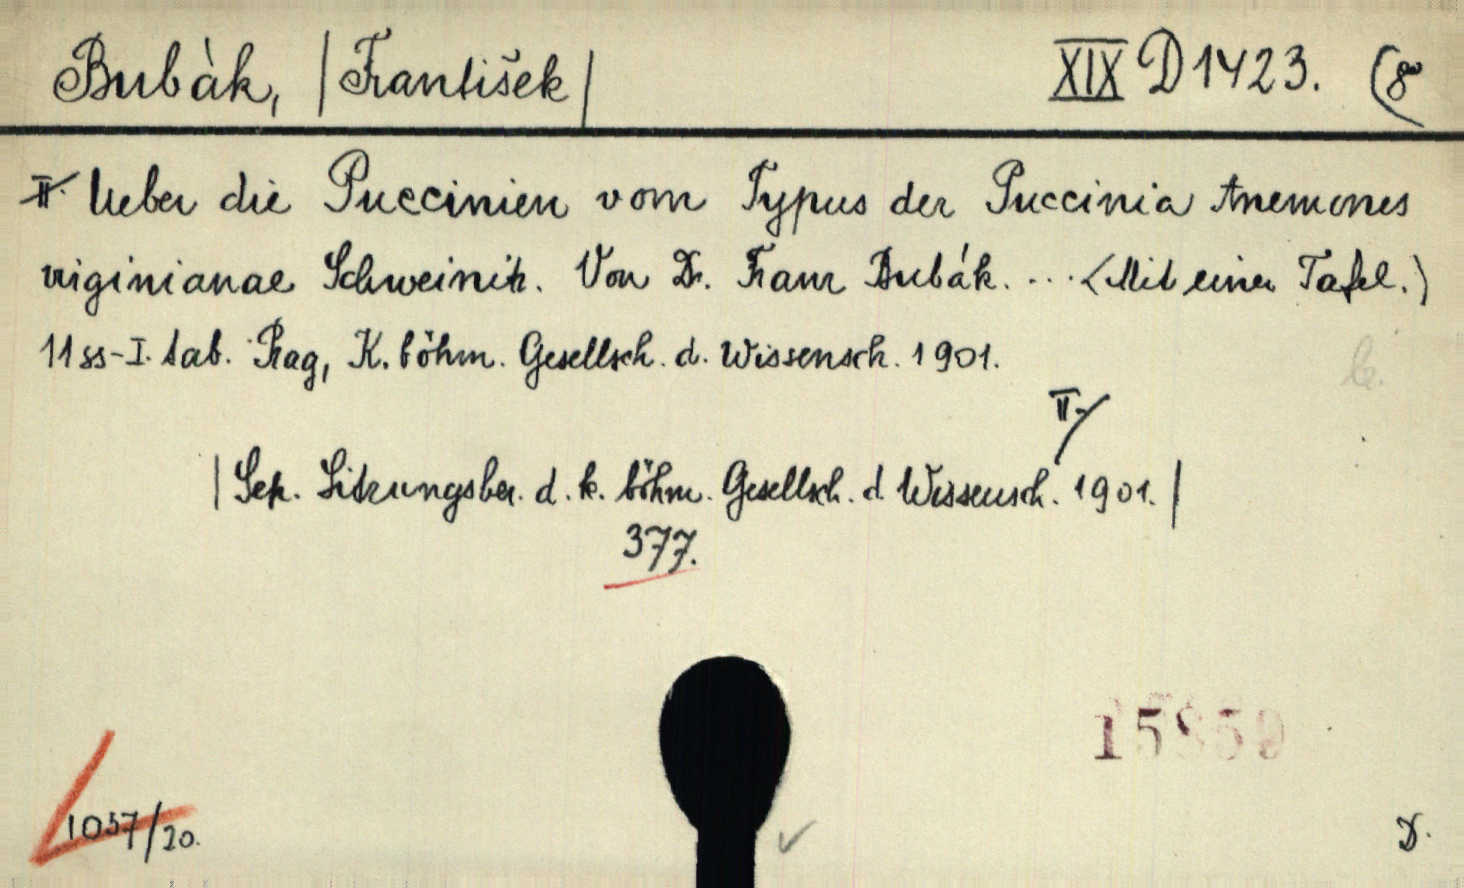 Bubàk, |František|
XIX D 1423. (8°
II. Ueber die Puccinien vom Typus der Puccinia Anemones
virginianae Schweinitz. Von Dr. Franz Bubák. ... (Mit einer Tafel.)
11 ss-I. tab. Prag, K. böhm. Gesellsch. d. Wissensch. 1901.
II.
|Sep. Sitzungsber. d. k. böhm. Gesellsch. d Wissensch. 1901.|
377.
15859
1057/20.
D.